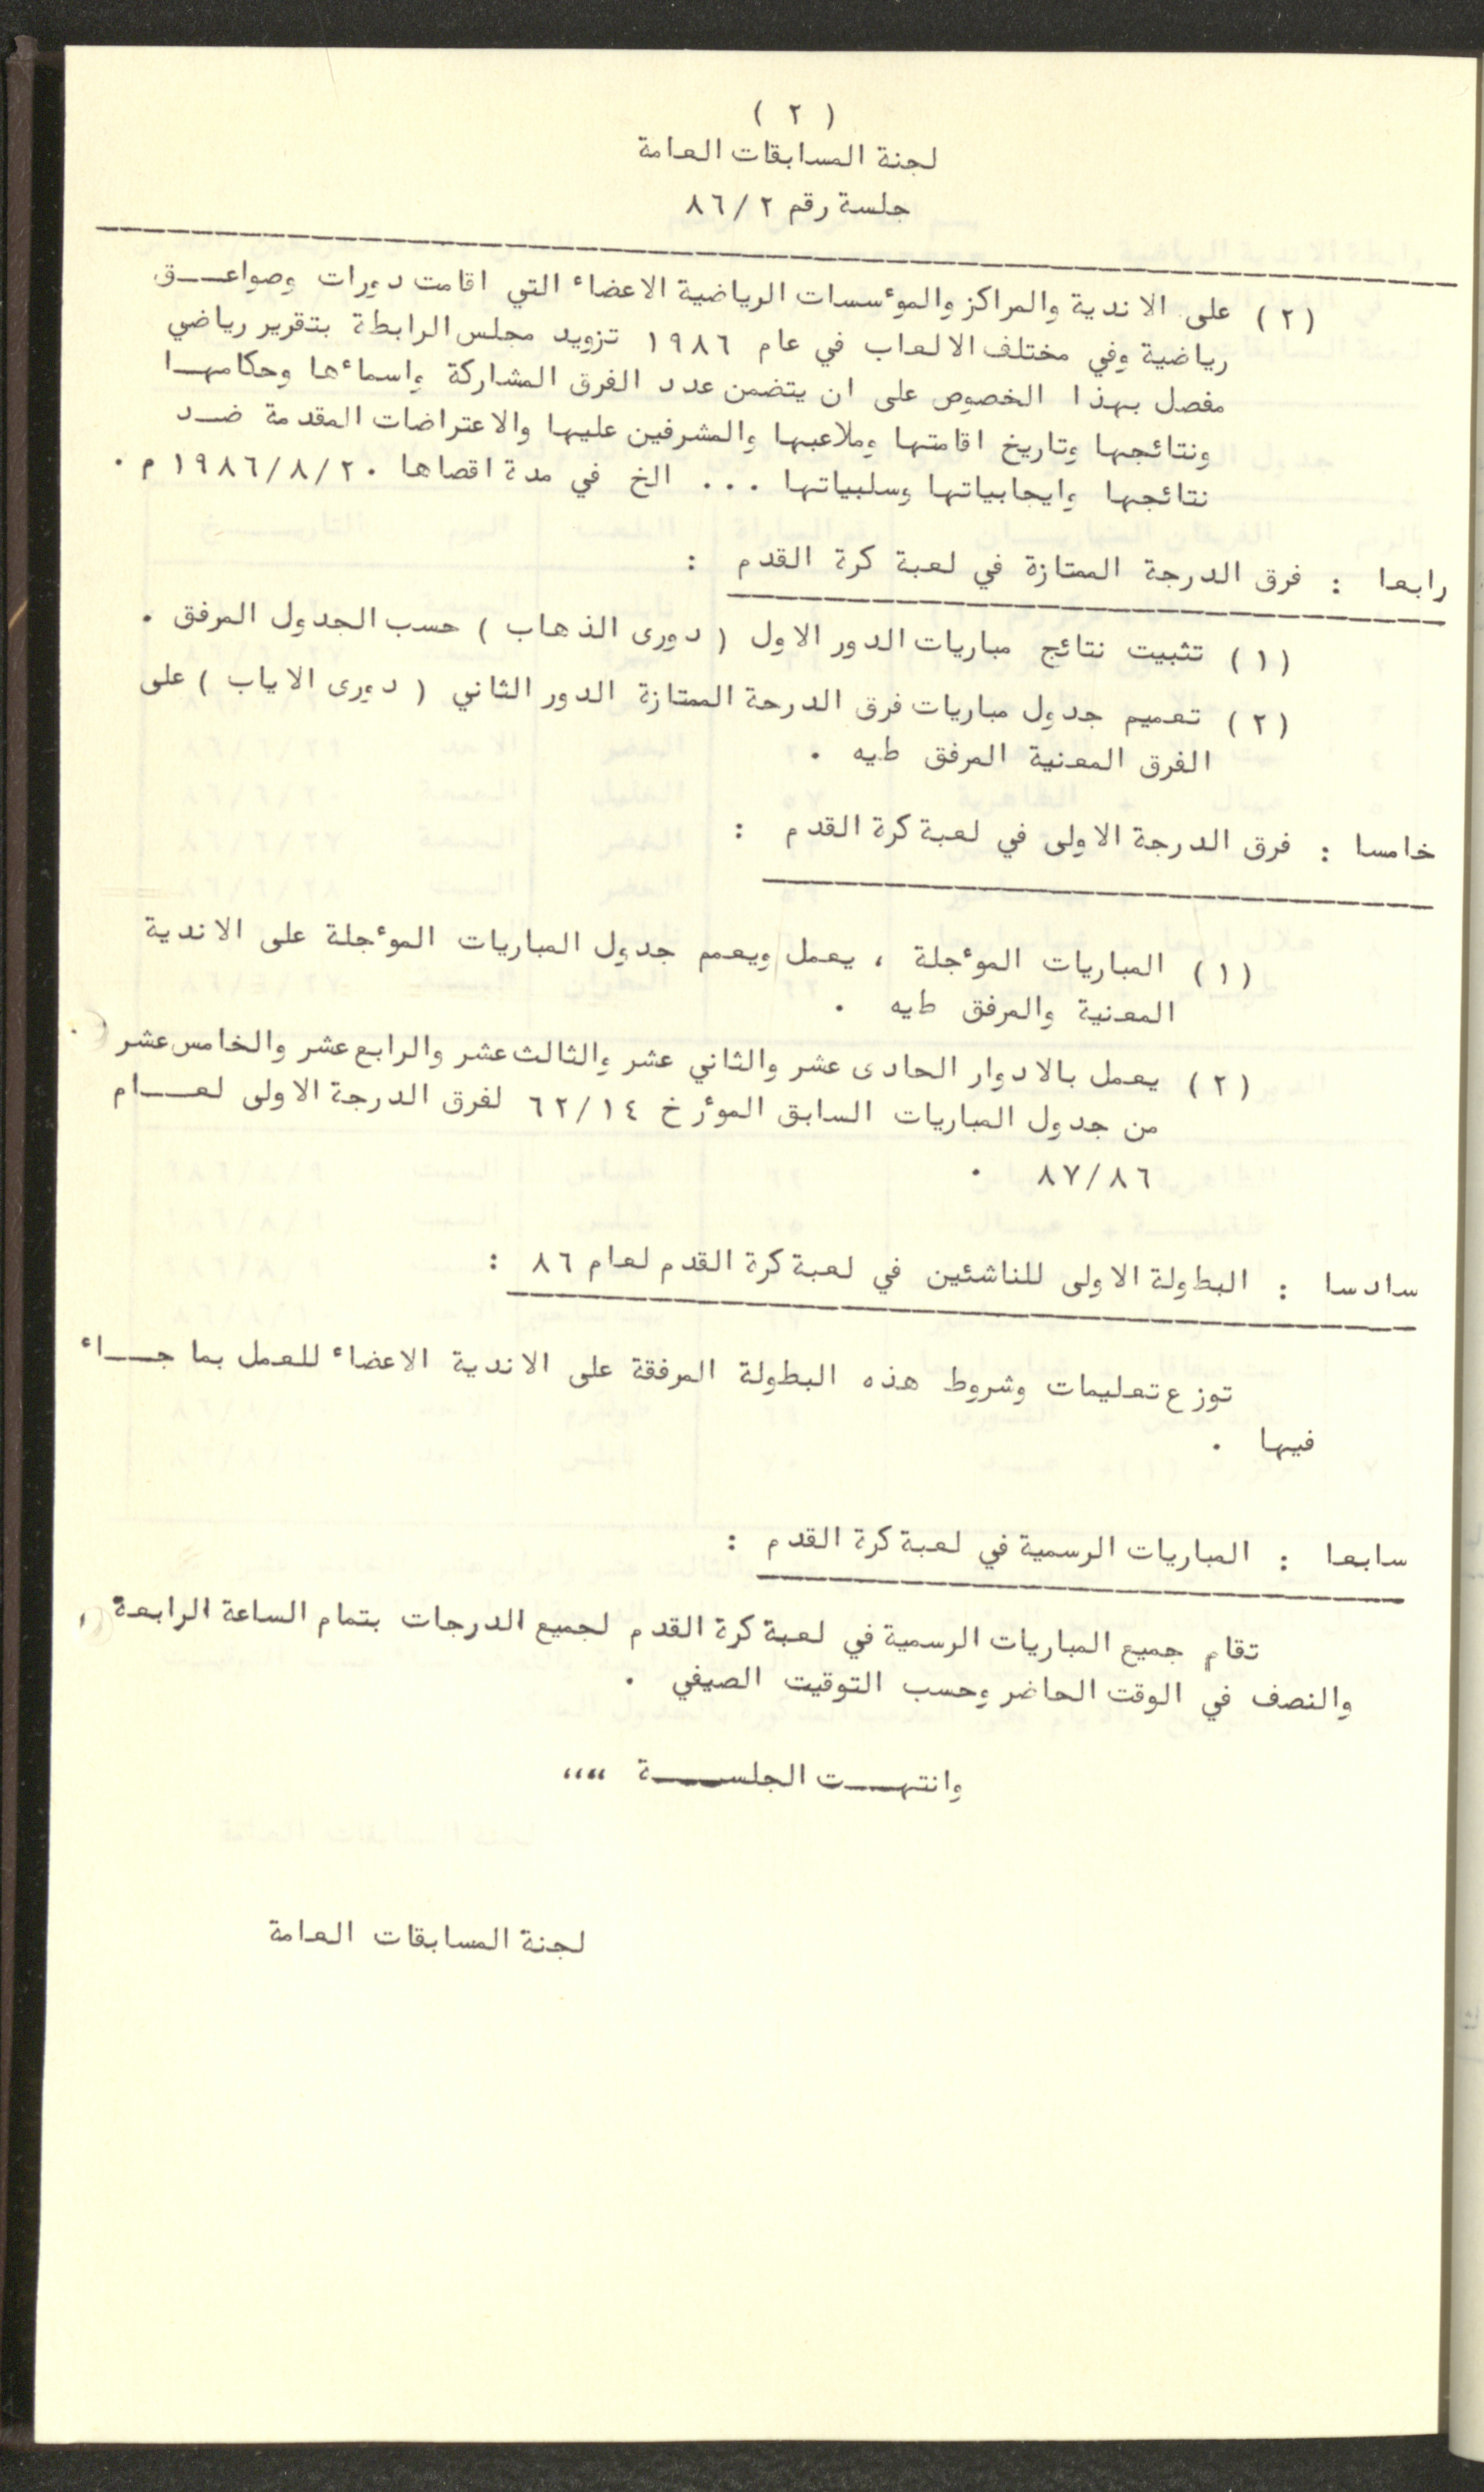 ( ٢ )
لجنة المسابقات العامة
جلسة رقم ٨٦/٢
(٢) على الاندية والمراكز والموٴسسات الرياضية الاعضاء التي اقامت دورات وصواعــق
رياضية وفي مختلف الالعاب في عام ١٩٨٦ تزويد مجلس الرابطة بتقرير رياضي
مفصل بهذا الخصوص على ان يتضمن عدد الفرق المشاركة واسماءها وحكامهــا
ونتائجها وتاريخ اقامتها وملاعبها والمشرفين عليها والاعتراضات المقدمة ضــد
نتائجها وايجابياتها وسلبياتها ... الخ في مدة اقصاها ١٩٨٦/٨/٢٠ م .
رابعا : فرق الدرجة الممتازة في لعبة كرة القدم :
(١) تثبيت نتائج مباريات الدور الاول ( دورى الذهاب ) حسب الجدول المرفق .
(٢) تعميم جدول مباريات فرق الدرحة الممتازة الدور الثاني ( دورى الاياب ) على
الفرق المعنية المرفق طيه .
خامسا : فرق الدرجة الاولى في لعبة كرة القدم :
(١) المباريات الموٴجلة ، يعمل ويعمم جدول المباريات الموٴجلة على الاندية
المعنية والمرفق طيه .
(٢) يعمل بالادوار الحادى عشر والثاني عشر والثالث عشر والرابع عشر والخامس عشر
من جدول المباريات السابق الموٴرخ ٦٢/١٤ لفرق الدرجة الاولى لعــام
٨٧/٨٦ .
سادسا : البطولة الاولى للناشئين في لعبة كرة القدم لعام ٨٦ :
توزع تعليمات وشروط هذه البطولة المرفقة على الاندية الاعضاء للعمل بما جــاء
فيها .
سابعا : المباريات الرسمية في لعبة كرة القدم :
تقام جميع المباريات الرسمية في لعبة كرة القدم لجميع الدرجات بتمام الساعة الرابعة
والنصف في الوقت الحاضر وحسب التوقيت الصيفي .
وانتهــت الجلســة ،،،،
لجنة المسابقات العامة